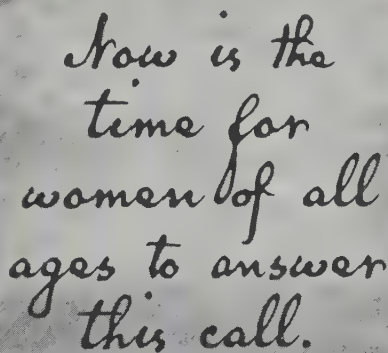 Now is the
time for
women of all
ages to answer
this call.